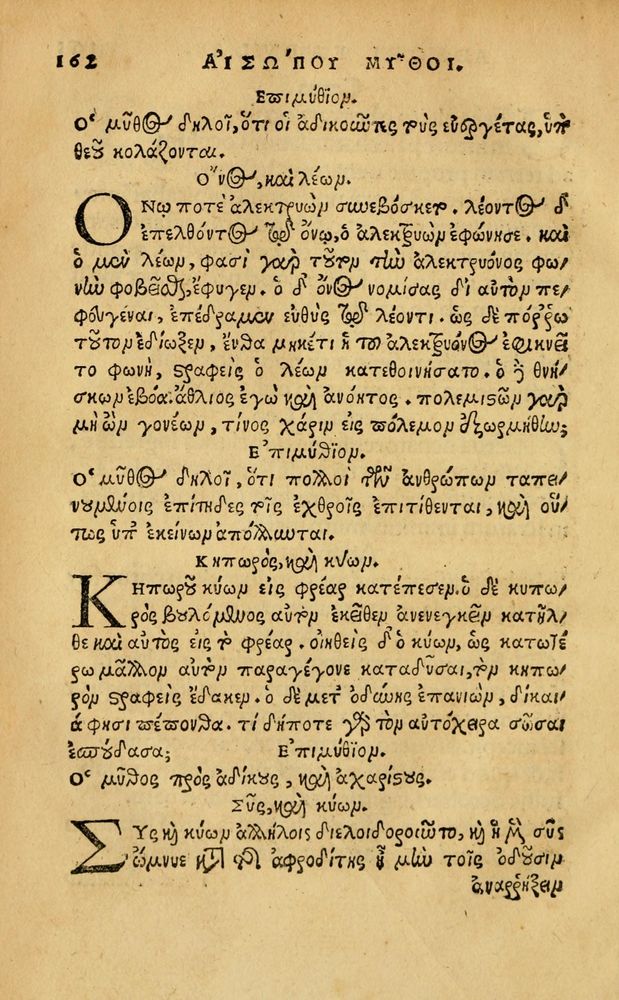 162 ΑἸΣΩ´ΠΟΥ ΜΥ῀ΘΟΙ.
Επιμύθιον.
Ο῾ μῦθος δηλοῖ, ὅτι οἱ ἀδικοῦντες τοὺς εὐεργέτας, ὑπὸ
θεοῦ κολάζονται.
Ο῎νος, καὶ λέων.
ΟΝῳ ποτὲ ἀλεκτρυὼν συνεβόσκεν. λέοντος δ᾽
ἐπελθόντος τῷ ὄνῳ, ὁ ἀλεκτρυὼν ἐφώνησε. καὶ
ὁ μὲν λέων, φασὶ γὰρ τοῦτον τὴν ἀλεκτρυόνος φω/
νὴν φοβεῖσθαι, ἔφυγεν. ὁ δ᾽ ὄνος νομίσας δι αὐτὸν πε/
φευγέναι, ἐπέδραμεν εὐθὺς τῷ λέοντι. ὡς δὲ πόῤῥω
τοῦτον ἐδίωξεν, ἔνθα μηκέτι ἡ τοῦ ἀλεκτρυόνος ἐφικνεῖ
το φωνὴ, στραφεὶς ὁ λέων κατεθοινήσατο. ὁ δὲ θνή/
σκων ἐβόα. ἄθλιος ἐγὼ καὶ ἀνόητος. πολεμιστῶν γὰρ
μὴ ὢν γονέων, τίνος χάριν εἰς πόλεμον ἐξωρμήθην;
Ε᾽πιμύθιον.
Ο῾ μῦθος δηλοῖ, ὅτι πολλοὶ τῶν ἀνθρώπων ταπει/
νουμένοις ἐπίτηδες τοῖς ἐχθροῖς ἐπιτίθενται, καὶ οὕ/
τως ὑπ᾽ ἐκείνων ἀπόλλυνται.
Κηπωρὸς, καὶ κύων.
ΚΗπωροῦ κύων εἰς φρέαρ κατέπεσεν. ὁ δὲ κυπω/
ρὸς βουλόμενος αὐτὸν ἐκεῖθεν ἀνενεγκεῖν κατῆλ/
θε καὶ αὐτὸς εἰς τὸ φρέαρ. οἰηθεὶς δ᾽ ὁ κύων, ὡς κατωτέ
ρω μᾶλλον αὐτὸν παραγέγονε καταδῦσαι, τὸν κηπω/
ρὸν στραφεὶς ἔδακεν. ὁ δὲ μετ᾽ ὀδύνης ἐπανιὼν, δίκαι/
ά φησι πέπονθα. τί δήποτε γὰρ τὸν αὐτόχειρα σῶσαι
ἐσπούδασα; Ε᾽πιμύθιον.
Ο῾ μῦθος πρὸς ἀδίκους, καὶ ἀχαρίστους.
Σῦς, καὶ κύων.
ΣΥς καὶ κύων ἀλλήλοις διελοιδοροῦντο, καὶ ἡ μὲν σῦς
ὤμνυε κατὰ τῆς ἀφροδίτης ἦ μὴν τοῖς ὀδοῦσιν
ἀναῤῥήξειν